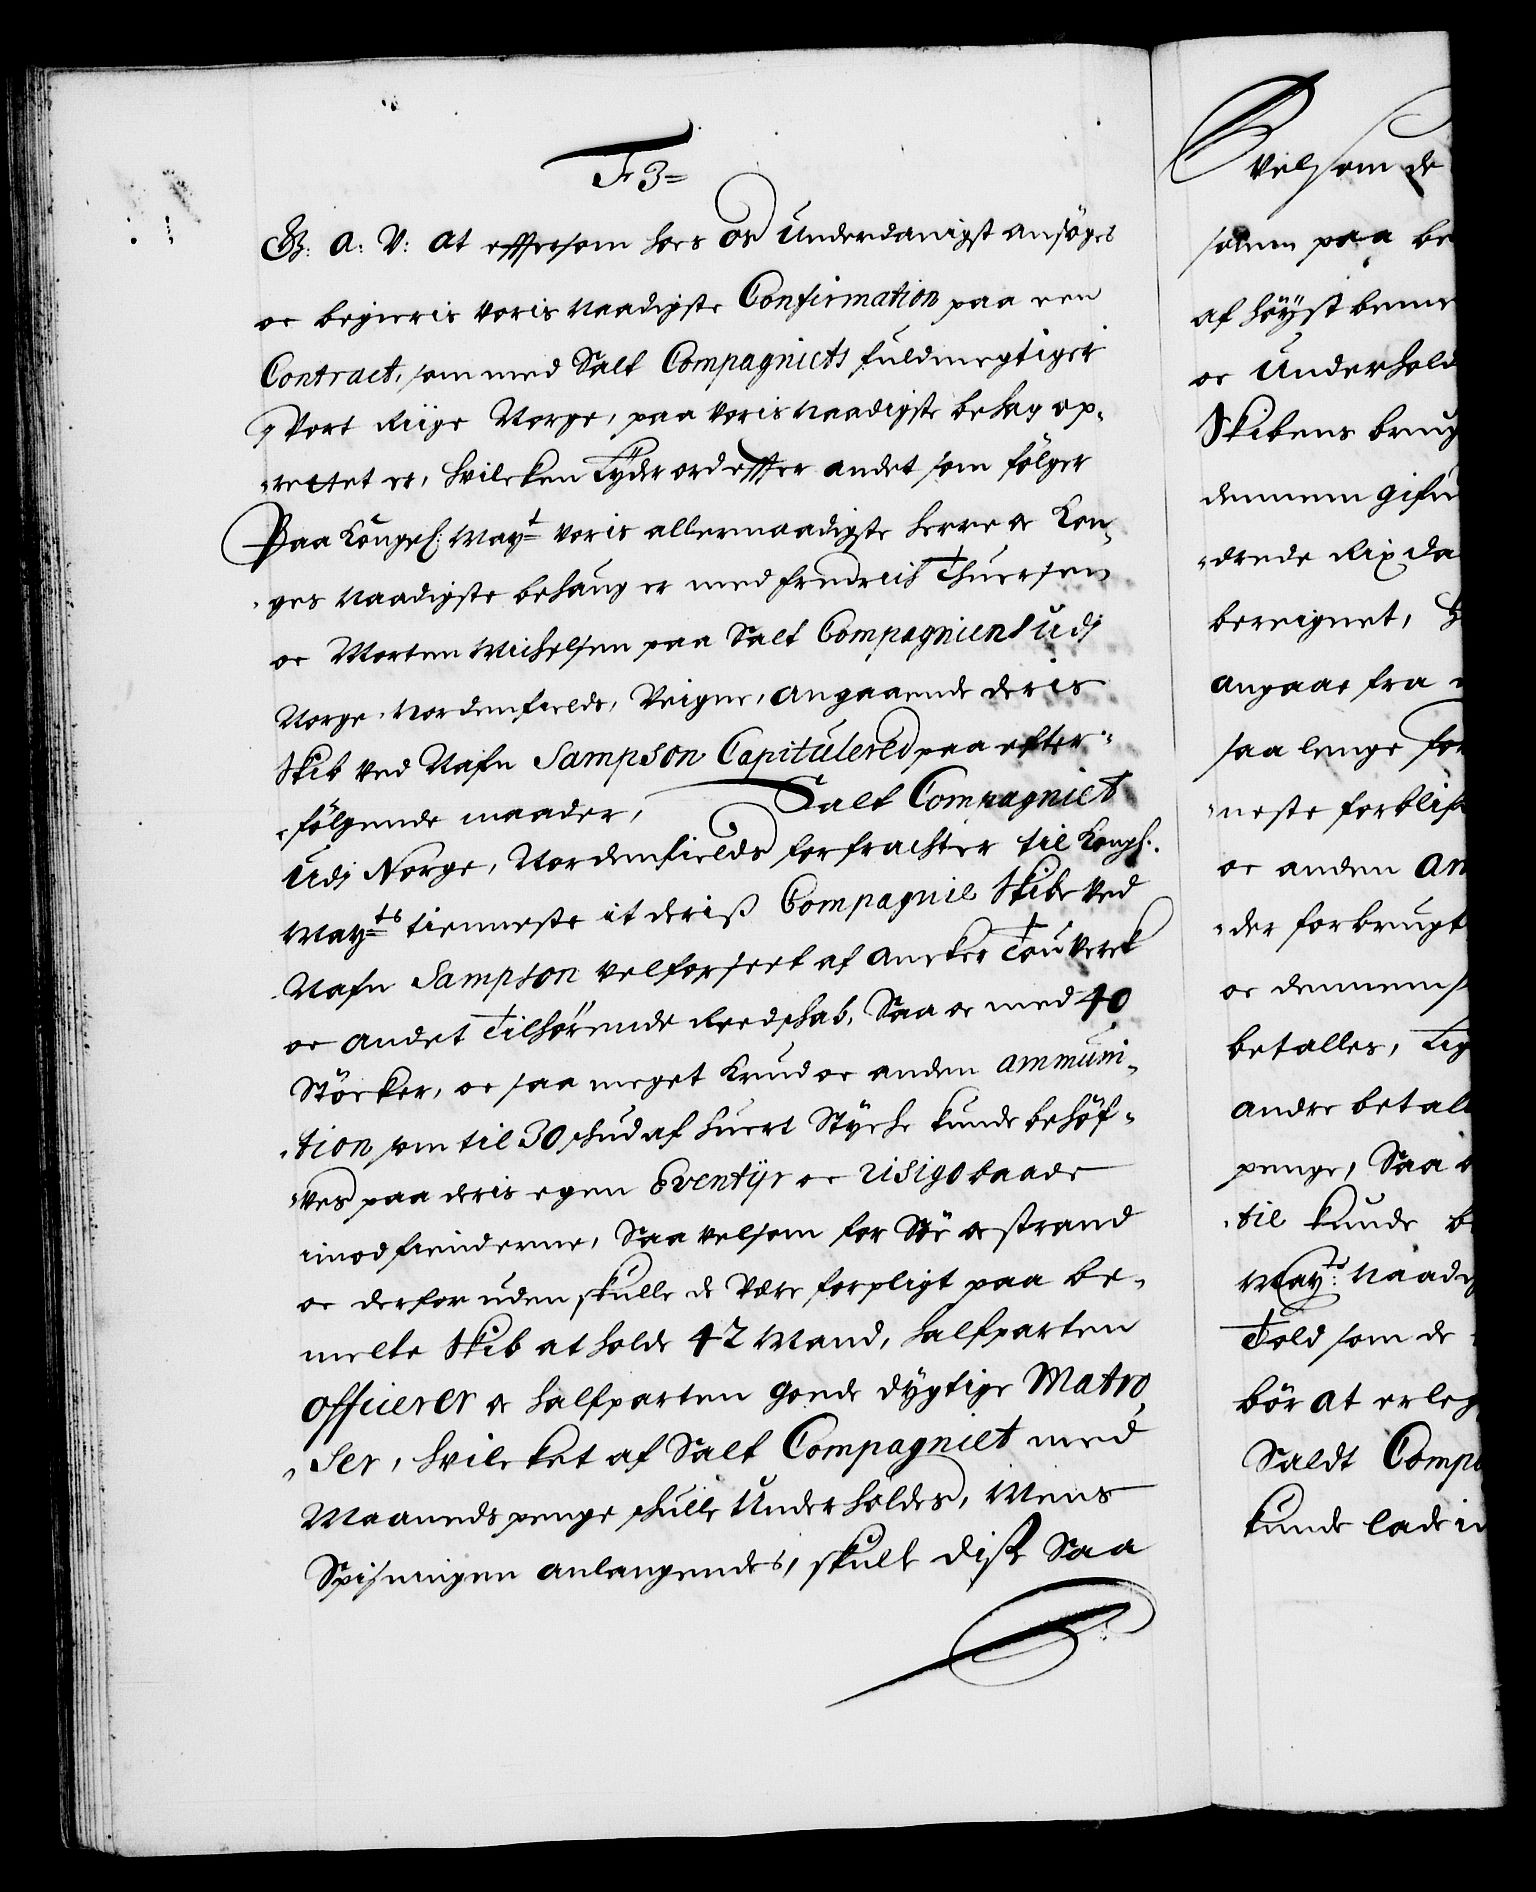 F 3=
G: A: V: At effersom hos os Underdanigst ansøges
oc begieris voris naadigste Confirmation paa een
Contract, som med Salt Compagniets fuldmegtiger
j Vort Riige Norge, paa voris naadigste behag op-
-rettet er, hvilcken lyder ord effter andet som følger
Paa Kongel: Mayt voris allernaadigste herre oc Kon-
-ges naadigste behaug er med Fredrich Thuersen
oc Morten Michelsen paa Salt Compagniens Udj
Norge Nordenfields, Veigne, angaaende deris
Skib ved Nafn Sampson Capitulered paa efter-
-følgende maader, Salt Compagniet
Udj Norge, Nordenfields forfrachter til Kongl:
Mayts tienneste it deris Compagnie Skibe ved
Nafn Sampson velforseet af Ancker Touverck
oc andet Tilhørende Reedskab, Saa oc med 40
Støcker, oc saa meget Krud oc anden Ammuni-
-tion som til 30 skud af huert Støche kunde behøf-
-ves paa deris egen Eventÿr oc risigo baade
imod fienderne, Saa velsom for Søe oc strand
oc derforuden skulle de være forpligt paa be-
melte Skib at holde 42 Mand, halfparten
Officierer oc halfparten goede dygtige Matro-
-ser, hvilcket af Salt Compagniet med
Maanedspenge skulle Underholdes, Mens
Spisningen anlangendes, skulle disse Saa
velsom de
sønen paa be
af høÿst benne
oc Underhold
Skibens brug
dennem gifu
-drede Rixda
bereignet,
angaar fra
saa lenge for
-neste forblif
oc anden Am
-der forbrugt
oc dennem
betalles, Lig
andre betal
penge, Saa
-til kunde be
Mayts: Naadig
Told som de
bør at erleg
Saldt Comp
kunde lade i